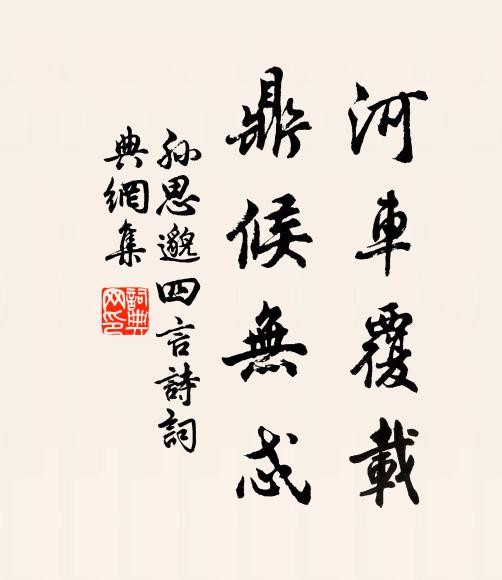 河車覆載
鼎候無忒
孫思邈四言詩詞
典網集
詞典網印